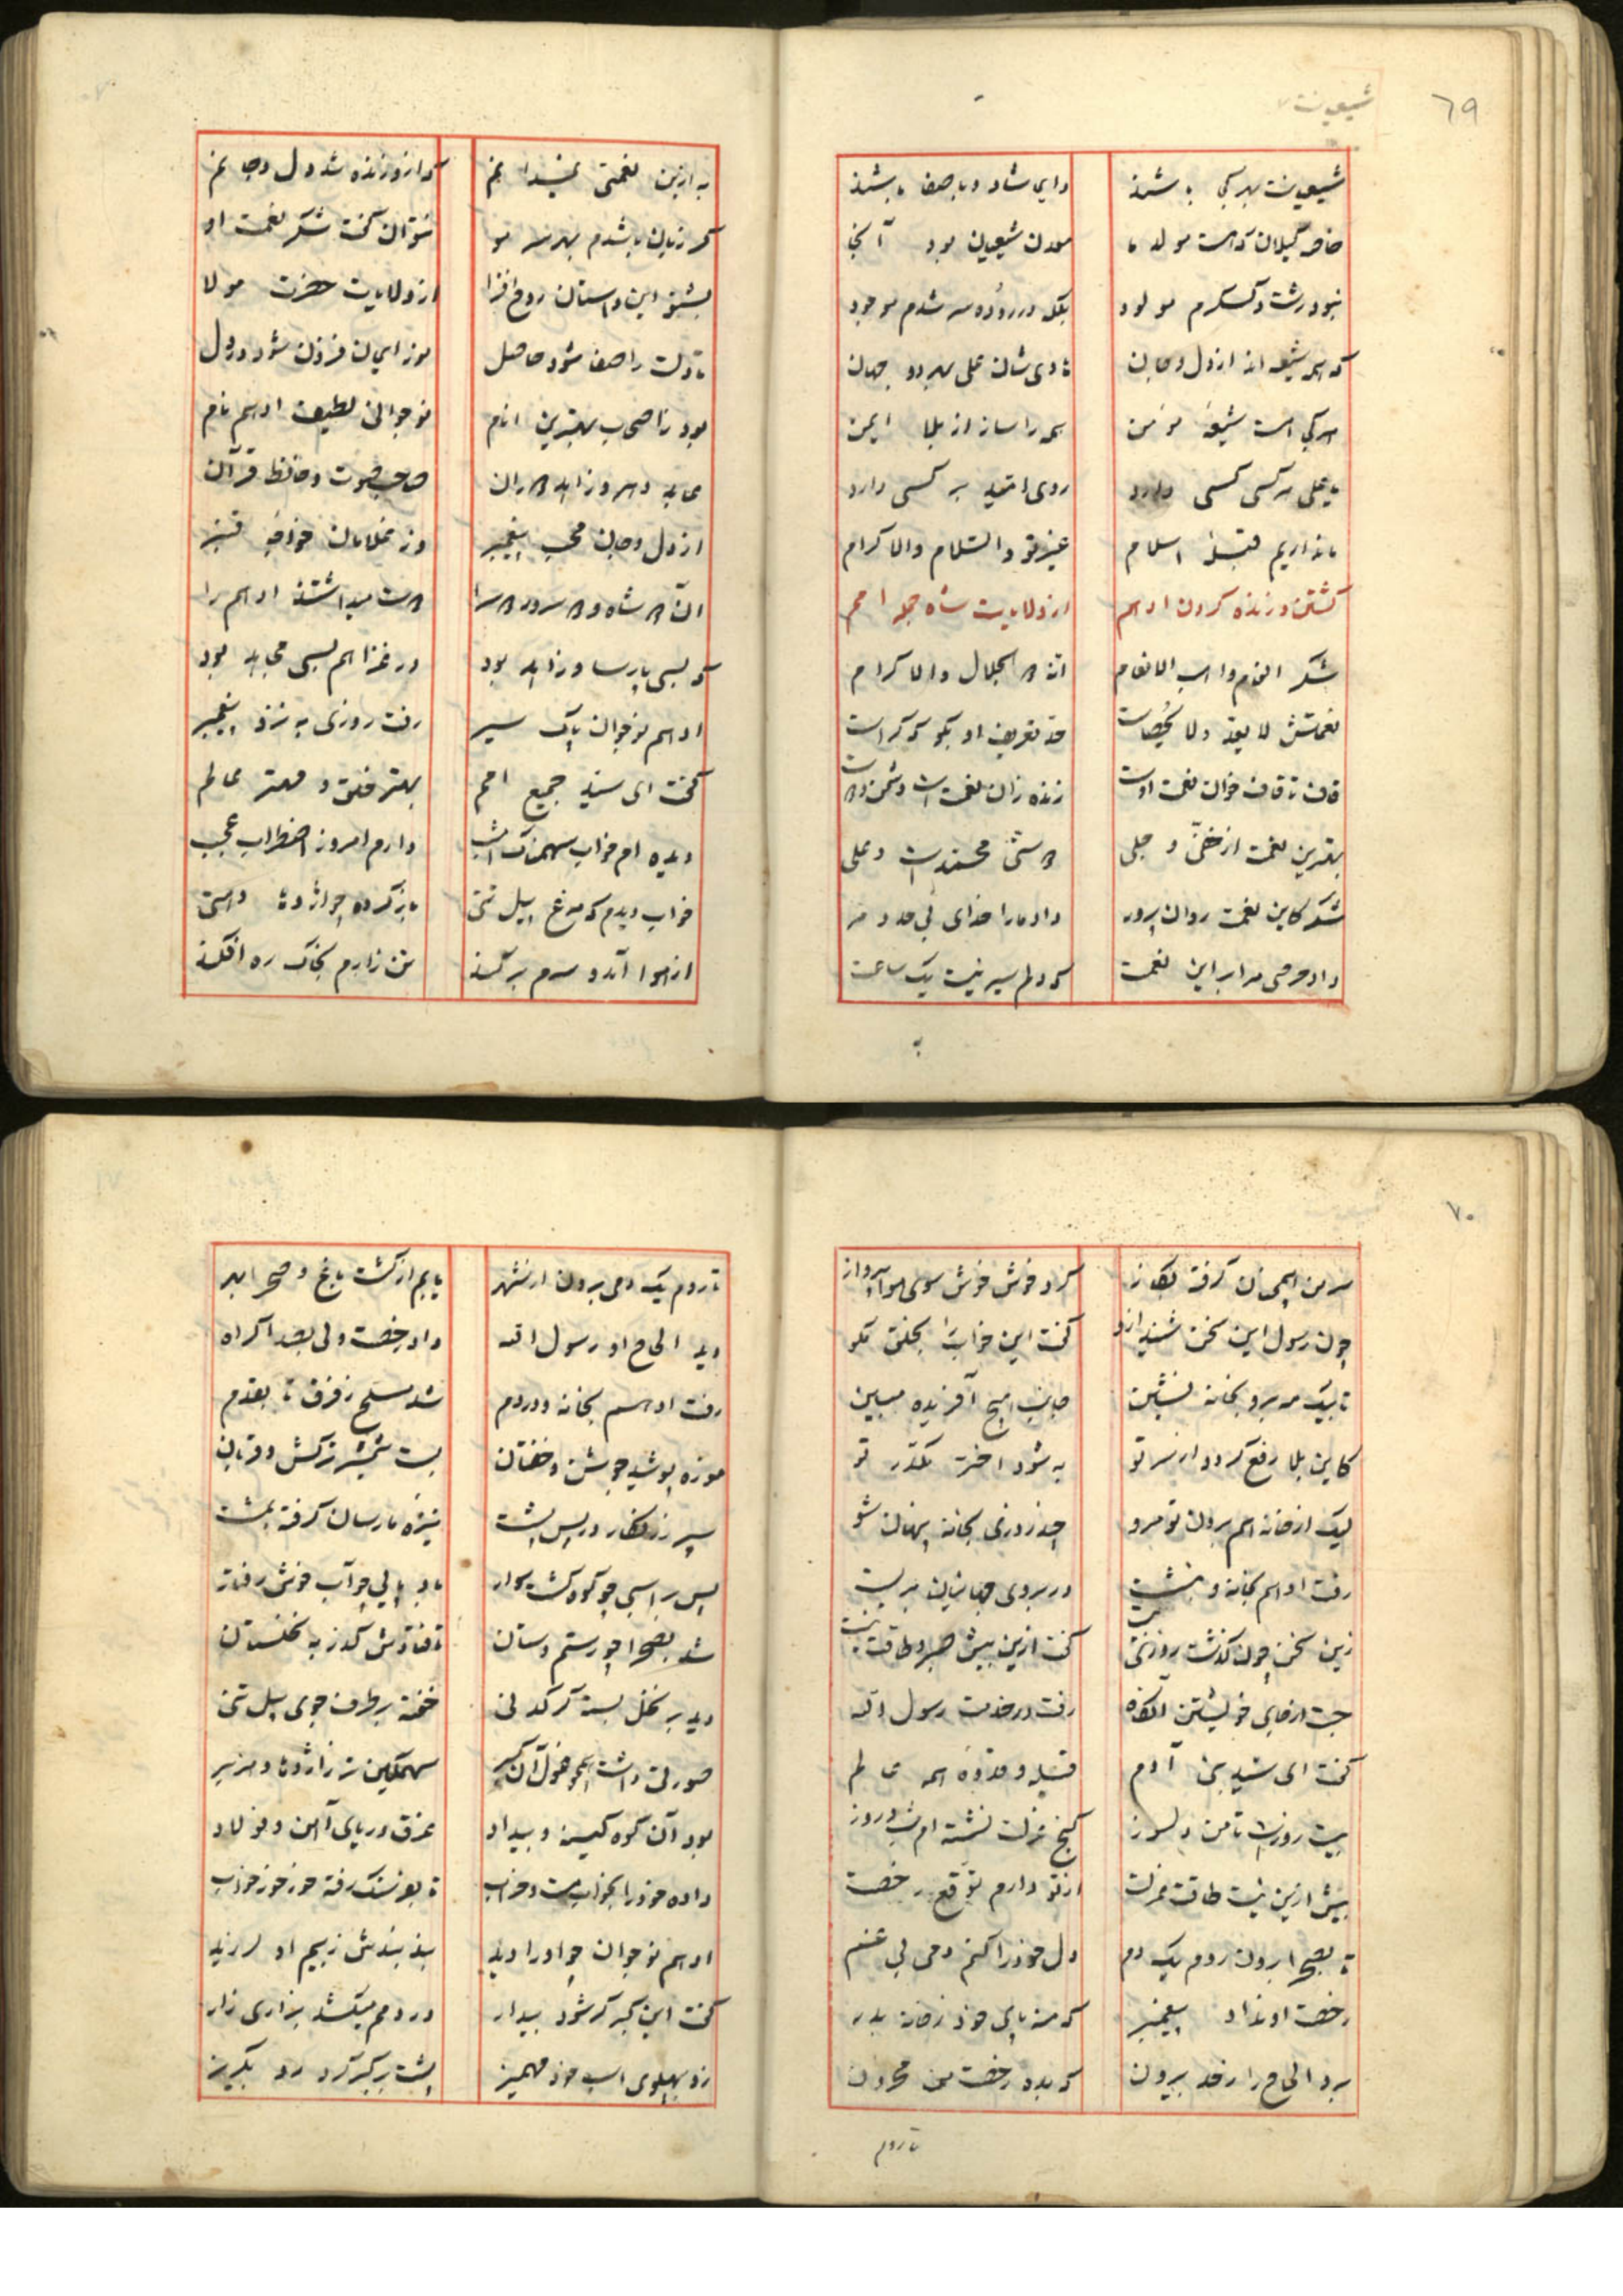 ٦٩
شیعیان
شیعیان هر کجا باشند دایم شاد و با صفا باشند
خاصه گیلان که هست مولد ما معدن شیعیان بود آنجا
نبود رشت و کسکرم مولود بلکه در رودسر شدم موجود
که همه شیعه اند از دل و جان هادی شان علی بهر دو جهان
هر کجا هست شیعه مؤمن همه را ساز از بلا ایمن
یا علی هر کسی کسی دارد روی امید بر کسی دارد
ما نداریم قبلهٔ اسلام غیر تو والسلام والاکرام
کشتن و زنده کردن ادهم از ولایت شاه جمله امم
شکر انعام واهب الانعام انه ذو الجلال والاکرام
نعمتش لا یعد ولا یحصاست حد تعریف او بگو که کراست
قاف تا قاف خوان نعمت اوست زنده زان نعمت است دشمن و دوست
بهترین نعمت از خفی و جلی دوستی محمد است و علی
شکر کاین نعمت روان پرور داد ما را خدای بی حد و مر
داد حرصی مرا بر این نعمت که دلم سیر نیست یک ساعت
به
به ازین نعمتی نمیدانم که ازو زنده شد دل و جانم
گر زبان باشدم بهر سر مو نتوان گفت شکر نعمت او
بشنو این داستان روح افزا از ولایت حضرت مولا
تا دلت را صفا شود حاصل نور ایمان فزون شود در دل
بود ز اصحاب بهترین انام نوجوانی لطیف ادهم نام
عابد دهر و زاهد دوران صاحب صوت و حافظ قرآن
از دل و جان محب پیغمبر وز غلامان خواجه قنبر
آن دو شاه و دو سرور دو سرا دوست میداشتند ادهم را
که بسی پارسا و زاهد بود در غزا هم بسی مجاهد بود
ادهم نوجوان پاک سیر رفت روزی به نزد پیغمبر
گفت ای سید جمیع امم بهتر خلق و مهتر عالم
دیده ام خواب سهمناک امشب دارم امروز اضطراب عجب
خواب دیدم که مرغ پیل تنی باز کرده چو اژدها دهنی
از هوا آمد و سرم بر کند تن زارم بخاک ره افکند
٧٠
سر من همچنان گرفته بگاز کرد خوش خوش سوی هوا پرواز
چون رسول این سخن شنید ازو گفت این خواب را بخلق مگو
تا بیک مه برو بخانه نشین جانب هیچ آفریده مبین
کاین بلا رفع گردد از سر تو به شود اختر مکدر تو
لیک از خانه هم برون تو مرو چند روزی بخانه پنهان شو
رفت ادهم بخانه و بنشست در بروی جهانیان بر بست
زین سخن چون گذشت روزی بیست گفت ازین بیش صبر و طاقت نیست
جست از جای خویشتن آنگاه رفت در خدمت رسول الله
گفت ای سید بنی آدم قبله و قدوه همه عالم
بیست روزست تا من دلسوز کنج عزلت نشسته ام شب و روز
بیش ازین نیست طاقت عزلت از تو دارم توقع رخصت
تا بصحرا برون روم یک دم دل خود را کنم دمی بی غم
رخصت او نداد پیغمبر که منه پای خود ز خانه بدر
برد الحاح را ز حد بیرون که بده رخصت من محزون
تا روم
تا روم یک دمی برون از شهر یابم از گشت باغ و صحرا بهر
دید الحاح او رسول الله داد رخصت ولی بصد اکراه
رفت ادهم بخانه و در دم شد مسلح ز فرق تا بقدم
موزه پوشید جوشن و خفتان بست شمشیر ترکش و قربان
سپر زرنگار در پس پشت نیزه مارسان گرفته بمشت
پس بر اسبی چو کوه گشت سوار باد پایی چو آب خوش رفتار
شد بصحرا چو رستم دستان تا فتادش گذر به نخلستان
دید بر نخل بسته کرگدنی خفته بر طرف جوی پیل تنی
صورتی داشت همچو غول آن گبر سهمگین تر ز اژدها و هزبر
بود آن کوه کینه و بیداد غرق دریای آهن و فولاد
داده خود را بخواب مست و خراب تا بفرسنگ رفته خورخور خواب
ادهم نوجوان چو او را دید بند بندش ز بیم او لرزید
گفت این گبر گر شود بیدار در دمم میکشد بزاری زار
زد بپهلوی اسب خود مهمیز پشت بر گبر کرد رو بگریز